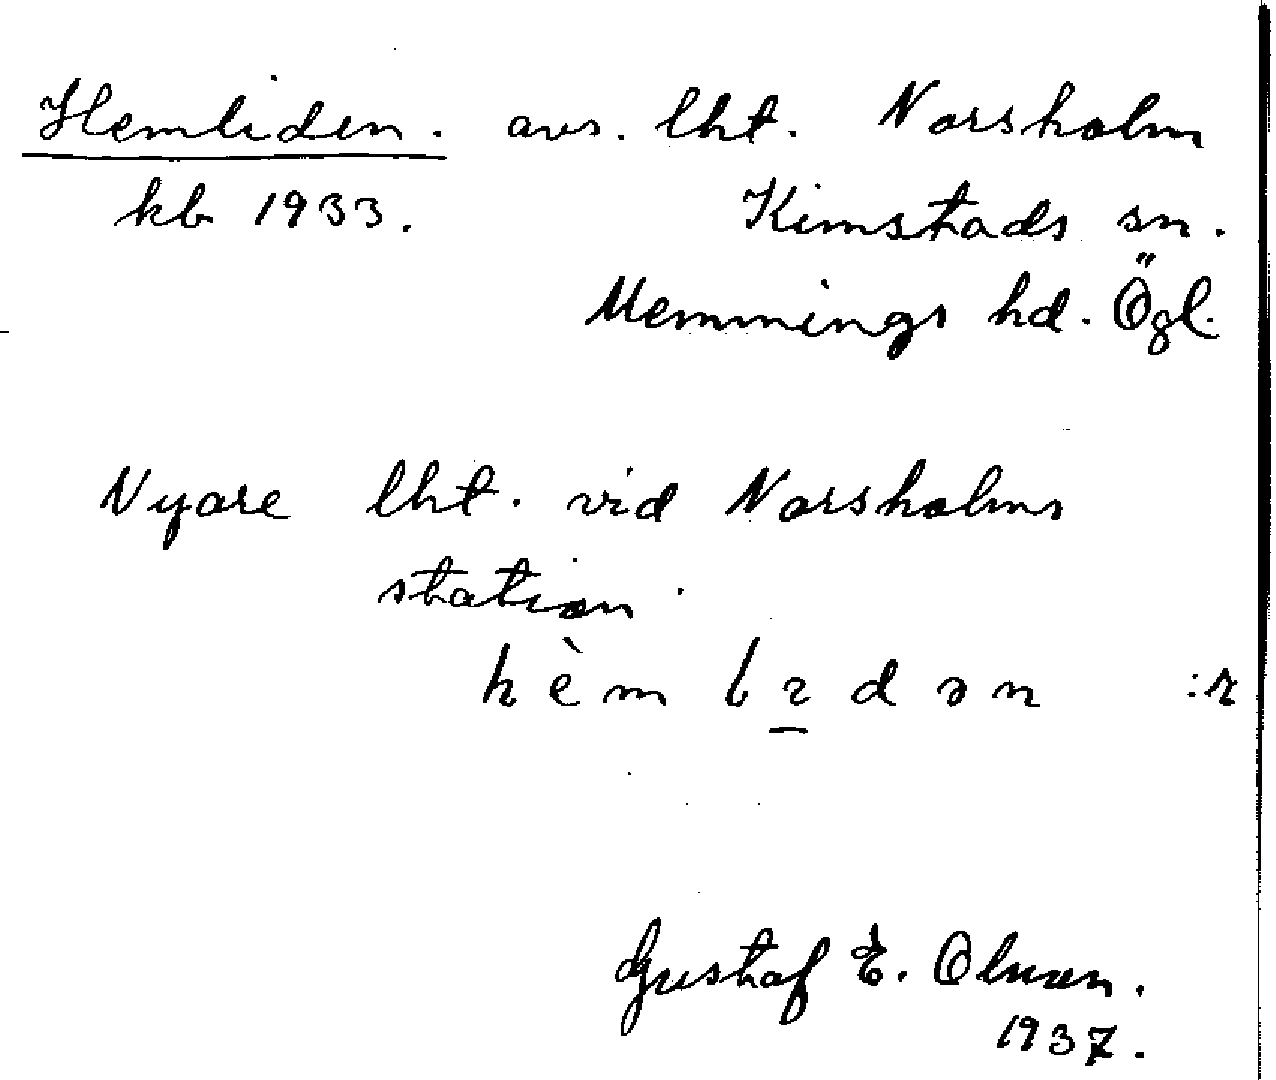 Hemliden. avs. lht. Norsholm
kb 1933. Kimstads sn.
Memmings hd. Ögl.
Nyare lht. vid Norsholms
station.
hèm lıdən :r
Gustaf E. Olsson.
1937.